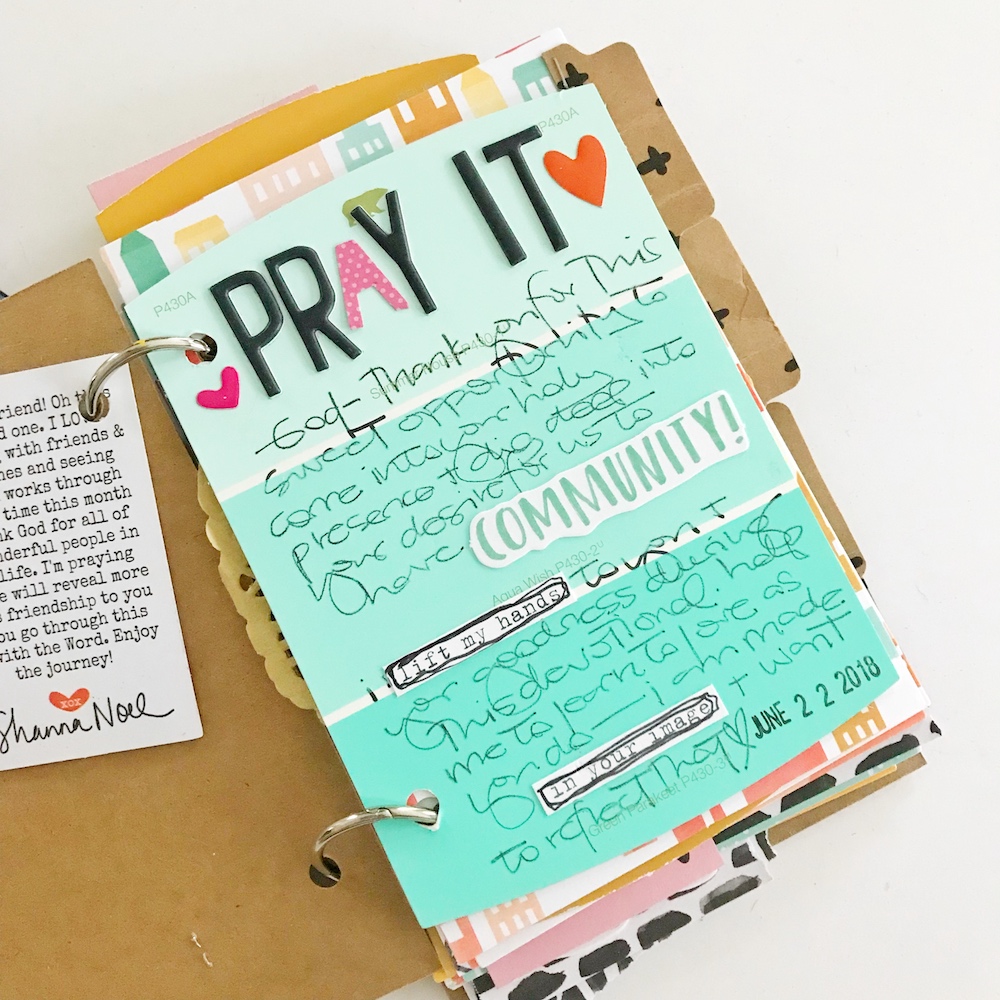 riend! Oh this
d one. I LO
with friends &
nes and seeing
works through
time this month
nk God for all of
nderful people in
life. I'm praying
e will reveal more
s friendship to you
ou go through this
with the Word. Enjoy
the journey!
xox
Shanna Noel
P430A
P430A
PRAY IT
God- Thank you for this
sweet opportunity to
come into your holy
presence + dig deep into
your desire for us to
have COMMUNITY!
Aqua Wish P430-2u
i lift my hands to you +
your goodness during
this devotional. help
me to learn to love as
you do - I am made
in your image + want
to reflect that
JUNE 22 2018
Green Parakeet P430-3